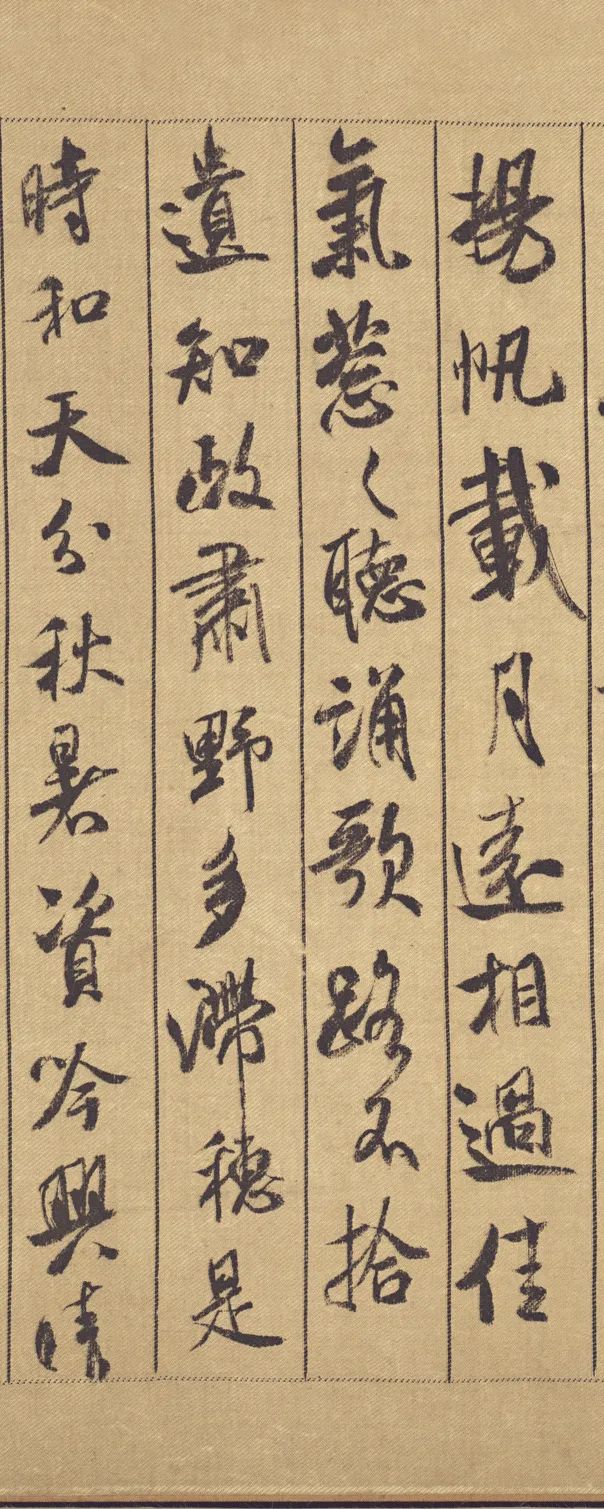 揚帆載月遠相過佳
氣葱〻聽誦歌路不拾
遺知政肅野多滯穗是
時和天分秋暑資吟興晴